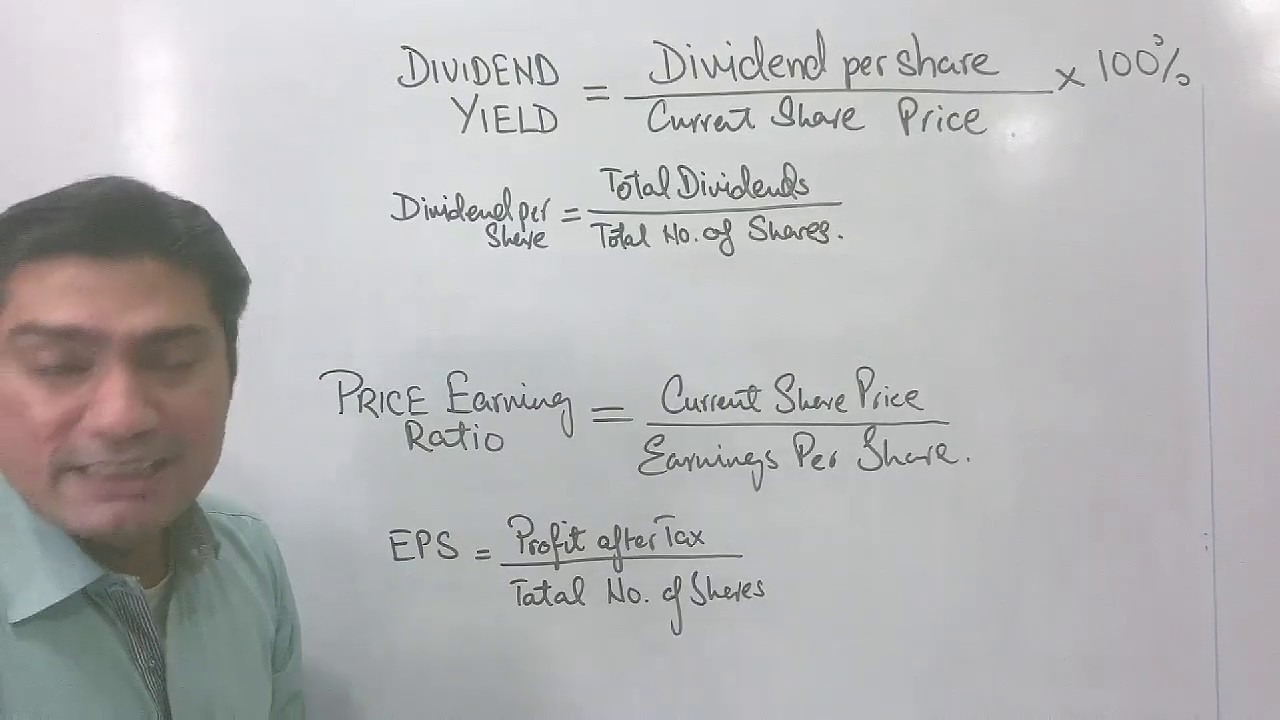 DIVIDEND YIELD = Dividend per share / Current Share Price × 100%
Dividend per Share = Total Dividends / Total No. of Shares.
PRICE Earning Ratio = Current Share Price / Earnings Per Share.
EPS = Profit after Tax / Tatal No. of Shares